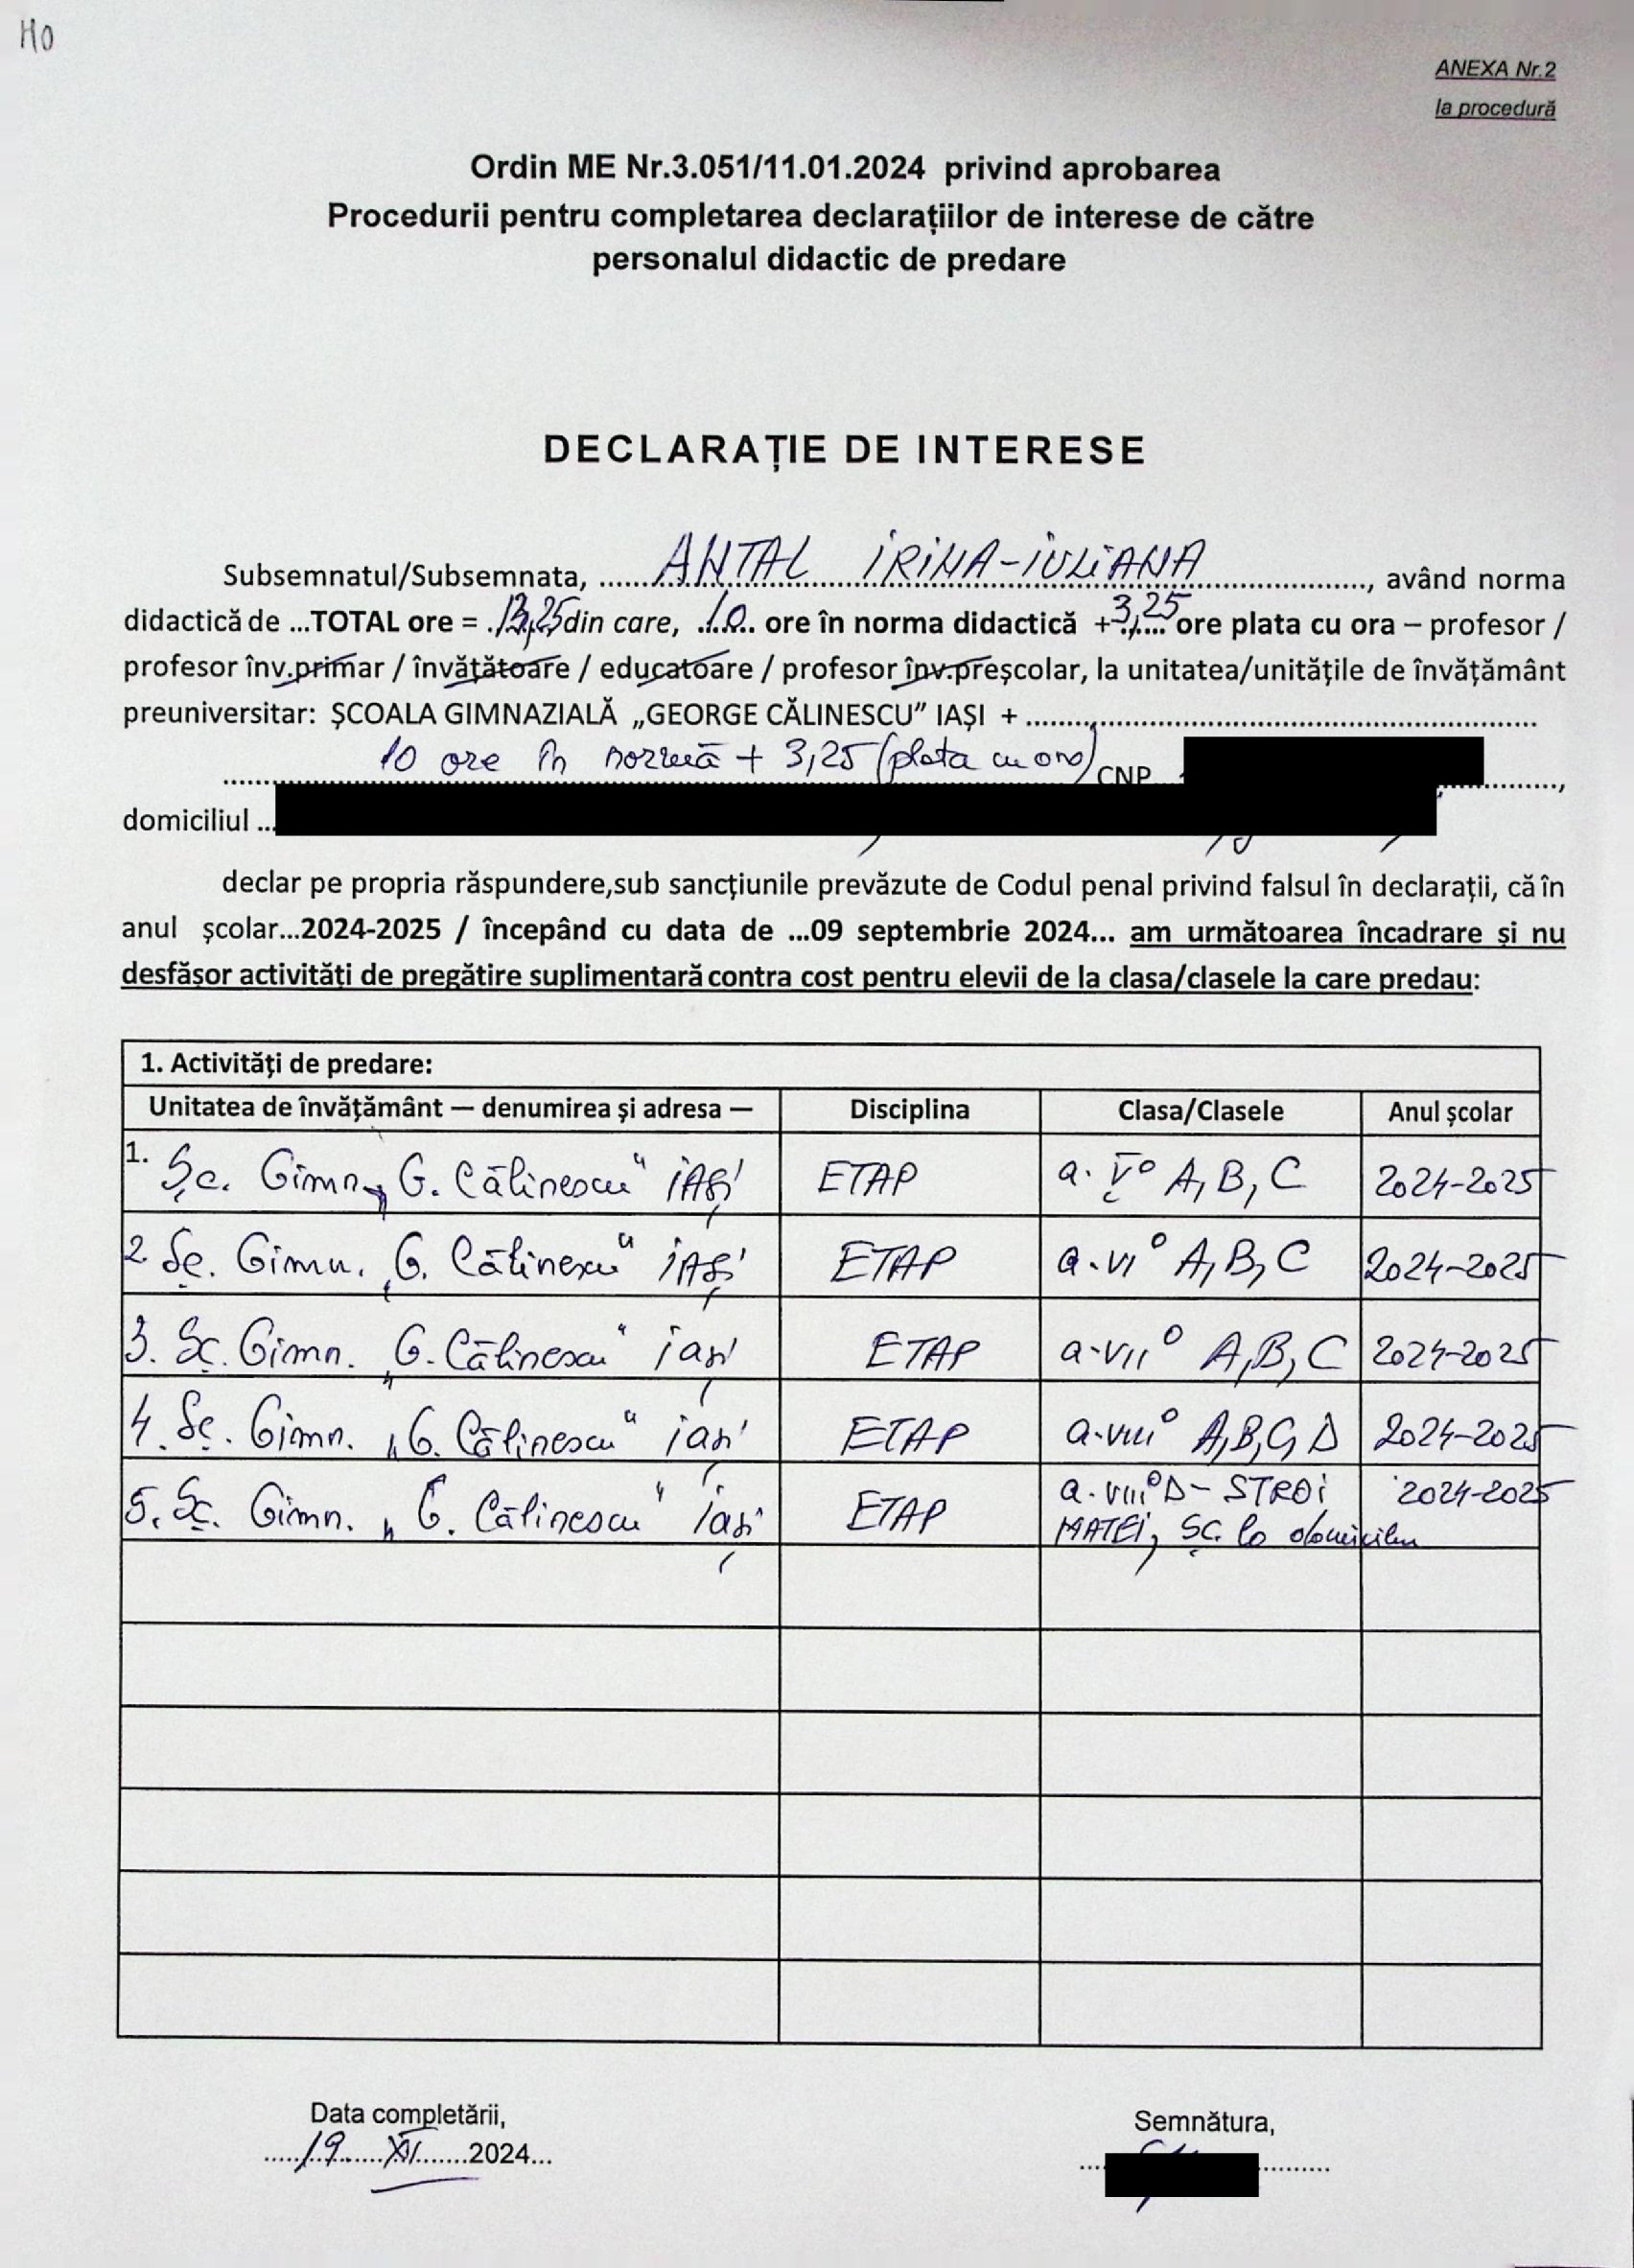 HO
ANEXA Nr.2
la procedură
Ordin ME Nr.3.051/11.01.2024 privind aprobarea
Procedurii pentru completarea declarațiilor de interese de către
personalul didactic de predare
DECLARAȚIE DE INTERESE
Subsemnatul/Subsemnata, ......ANTAL IRINA-IULIANA......, având norma
didactică de ...TOTAL ore = .13,25 din care, .10.. ore în norma didactică +3,25... ore plata cu ora – profesor /
profesor înv.primar / învățătoare / educatoare / profesor înv.preșcolar, la unitatea/unitățile de învățământ
preuniversitar: ȘCOALA GIMNAZIALĂ „GEORGE CĂLINESCU” IAȘI + ......
10 ore în normă + 3,25 (plata cu ora) CNP ......,
domiciliul ...
declar pe propria răspundere,sub sancțiunile prevăzute de Codul penal privind falsul în declarații, că în
anul școlar...2024-2025 / începând cu data de ...09 septembrie 2024... am următoarea încadrare și nu
desfășor activități de pregătire suplimentară contra cost pentru elevii de la clasa/clasele la care predau:
1. Activități de predare:
Unitatea de învățământ — denumirea și adresa — Disciplina Clasa/Clasele Anul școlar
1. Șc. Gimn. „G. Călinescu" IAȘI ETAP a. V° A, B, C 2024-2025
2 Șc. Gimn. „G. Călinescu" IAȘI ETAP a. VI° A, B, C 2024-2025
3. Șc. Gimn. „G. Călinescu" Iași ETAP a-VII° A, B, C 2024-2025
4. Șc. Gimn. „G. Călinescu" Iași ETAP a-VIII° A, B, C, D 2024-2025
5. Șc. Gimn. „G. Călinescu" Iași ETAP a. VIII° D - STROI 2024-2025
MATEI, ȘC. la domiciliu
Data completării, Semnătura,
......19......XI.......2024...